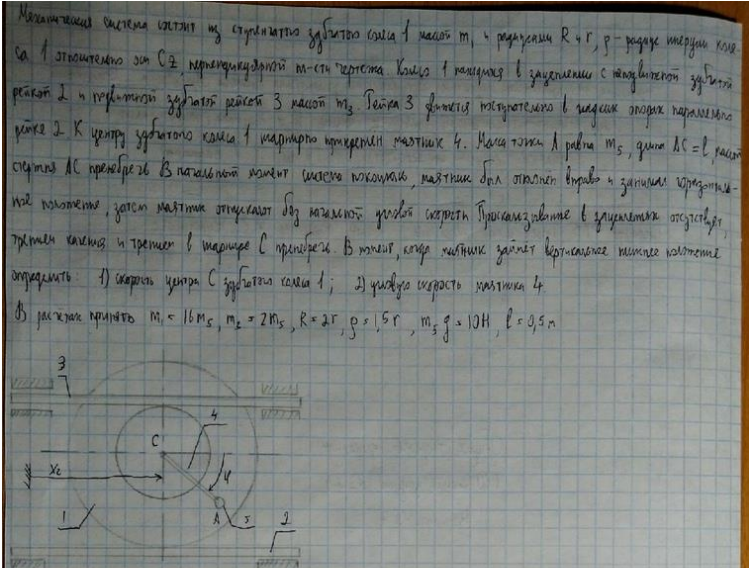 Механическая система состоит из ступенчатого зубчатого колеса 1 массой m₁ и радиусами R и r, ρ - радиус инерции коле-
са 1 относительно оси Cz, перпендикулярной пл-сти чертежа. Колесо 1 находится в зацеплении с неподвижной зубчатой
рейкой 2 и подвижной зубчатой рейкой 3 массой m₃. Рейка 3 движется поступательно в гладких опорах параллельно
рейке 2. К центру зубчатого колеса 1 шарнирно прикреплен маятник 4. Масса точки A равна m₅, длина AC = l, массой
стержня AC пренебречь. В начальный момент система покоилась, маятник был отклонен вправо и занимал горизонталь-
ное положение, затем маятник отпускают без начальной угловой скорости. Проскальзывание в зацеплениях отсутствует,
трением качения и трением в шарнире C пренебречь. В момент, когда маятник займет вертикальное нижнее положение
определить: 1) скорость центра C зубчатого колеса 1; 2) угловую скорость маятника 4.
В расчетах принять m₁ = 16m₅, m₃ = 2m₅, R = 2r, ρ = 1,5r, m₅g = 10Н, l = 0,5м
3
4
C
Xc
φ
A
5
1
2